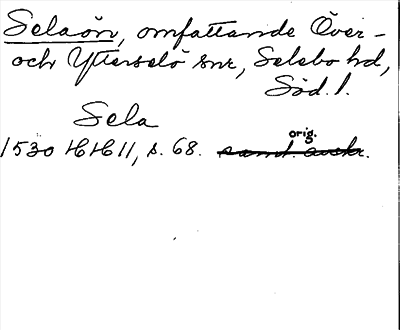 Selaön, omfattande Över-
och Ytterselö snr, Selebo hd,
Söd. l.
Sela
orig.
1530 HH II, s. 68. samt. avskr.